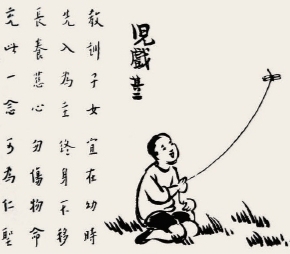 兒戲 其二
教訓子女宜在幼時
先入為主終身不移
長養慈心勿傷物命
充此一念可為仁聖